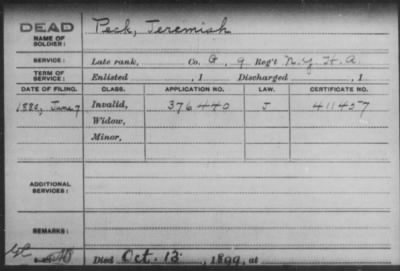 DEAD Peck, Jeremiah
NAME OF SOLDIER:
SERVICE: Late rank, Co. G, 9 Reg't N.Y. H.A.
TERM OF SERVICE: Enlisted , 1 Discharged , 1
DATE OF FILING. CLASS. APPLICATION NO. LAW. CERTIFICATE NO.
1880, June 7 Invalid, 376440 J 411457
Widow,
Minor,
ADDITIONAL SERVICES:
REMARKS:
Died Oct. 13, 1899, at